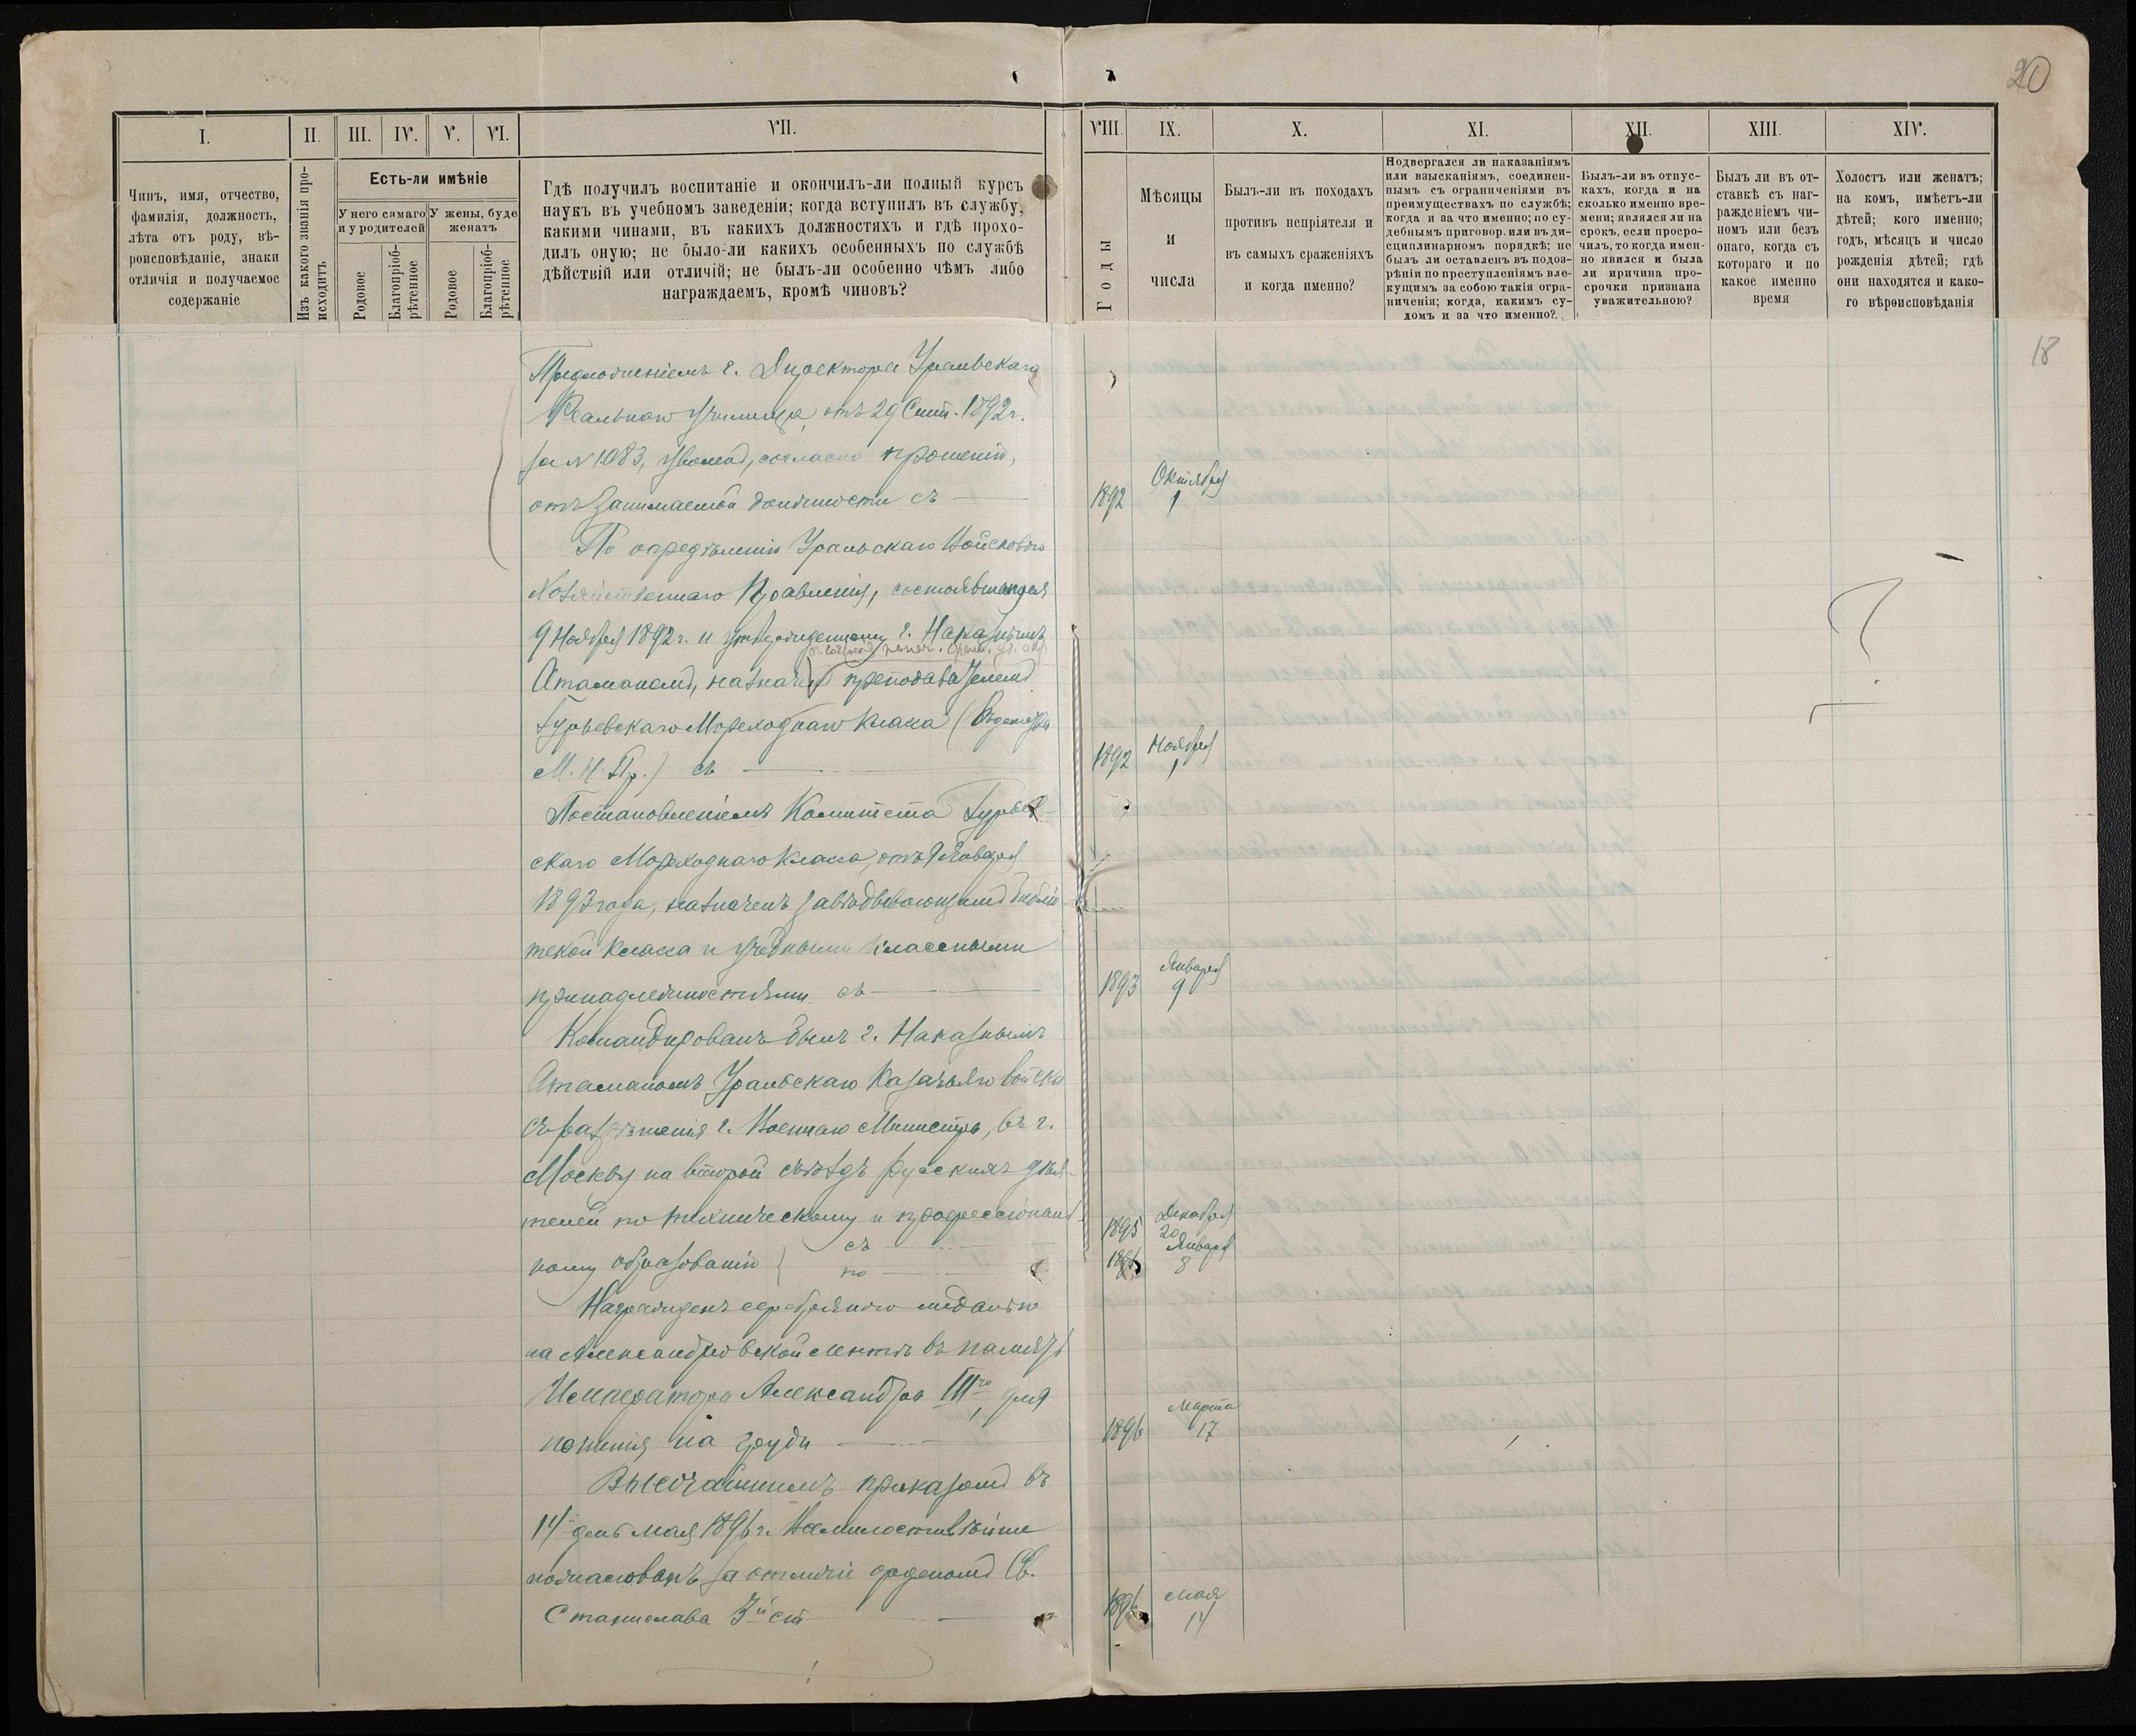 20
I.
II.
III.
IV.
V.
VI.
VII.
VIII.
IX.
X.
XI.
XII.
XIII.
XIV.
Чинъ, имя, отчество,
фамилія, должность,
лѣта отъ роду, вѣ-
роисповѣданіе, знаки
отличія и получаемое
содержаніе
Изъ какого званія про-
исходитъ
Есть-ли имѣніе
У него самаго
и у родителей
У жены, буде
женатъ
Родовое
Благопріоб-
рѣтенное
Родовое
Благопріоб-
рѣтенное
Гдѣ получилъ воспитаніе и окончилъ-ли полный курсъ
наукъ въ учебномъ заведеніи; когда вступилъ въ службу,
какими чинами, въ какихъ должностяхъ и гдѣ прохо-
дилъ оную; не было-ли какихъ особенныхъ по службѣ
дѣйствій или отличій; не былъ-ли особенно чѣмъ либо
награждаемъ, кромѣ чиновъ?
Годы
Мѣсяцы
и
числа
Былъ-ли въ походахъ
противъ непріятеля и
въ самыхъ сраженіяхъ
и когда именно?
Подвергался ли наказаніямъ
или взысканіямъ, соединен-
нымъ съ ограниченіями въ
преимуществахъ по службѣ;
когда и за что именно; по су-
дебнымъ приговор. или въ ди-
сциплинарномъ порядкѣ; не
былъ ли оставленъ въ подоз-
рѣніи по преступленіямъ вле-
кущимъ за собою такія огра-
ниченія; когда, какимъ су-
домъ и за что именно?
Былъ-ли въ отпус-
кахъ, когда и на
сколько именно вре-
мени; являлся ли на
срокъ, если просро-
чилъ, то когда имен-
но явился и была
ли причина про-
срочки признана
уважительною?
Былъ ли въ от-
ставкѣ съ наг-
ражденіемъ чи-
номъ или безъ
онаго, когда съ
котораго и по
какое именно
время
Холостъ или женатъ;
на комъ, имѣетъ-ли
дѣтей; кого именно;
годъ, мѣсяцъ и число
рожденія дѣтей; гдѣ
они находятся и како-
го вѣроисповѣданія
18
Предложеніемъ г. Директора Уральскаго
Реальнаго Училища, отъ 29 Сент. 1892 г.
за № 1083, уволенъ, согласно прошенію,
отъ занимаемой должности съ
1892 Октября 1
По опредѣленію Уральскаго Войсковаго
Хозяйственнаго Правленія, состоявшемуся
9 Ноября 1892 г. и утвержденному г. Наказнымъ
Атаманомъ, назначенъ преподавателемъ
Гурьевскаго Мореходнаго класса (Вѣдомства
М. Н. Пр.) съ
1892 Ноября 1
Постановленіемъ Комитета Гурьев-
скаго Мореходнаго класса, отъ 9 Января
1893 года, назначенъ завѣдывающимъ библіо-
текой класса и учебными классными
принадлежностями съ
1893 Января 9
Командированъ былъ г. Наказнымъ
Атаманомъ Уральскаго Казачьяго войска
съ разрѣшенія г. Военнаго Министра, въ г.
Москву на второй съѣздъ русскихъ дѣя-
телей по техническому и профессіональ-
ному образованію съ
по
1895 Декабря 20
1896 Января 8
Награжденъ серебряною медалью
на Александровской лентѣ въ память
Императора Александра III го, для
ношенія на груди
1896 Марта 17
Высочайшимъ приказомъ въ
14 день мая 1896 г. Всемилостивѣйше
пожалованъ за отличіе орденомъ Св.
Станислава 3й ст
1896 мая 14